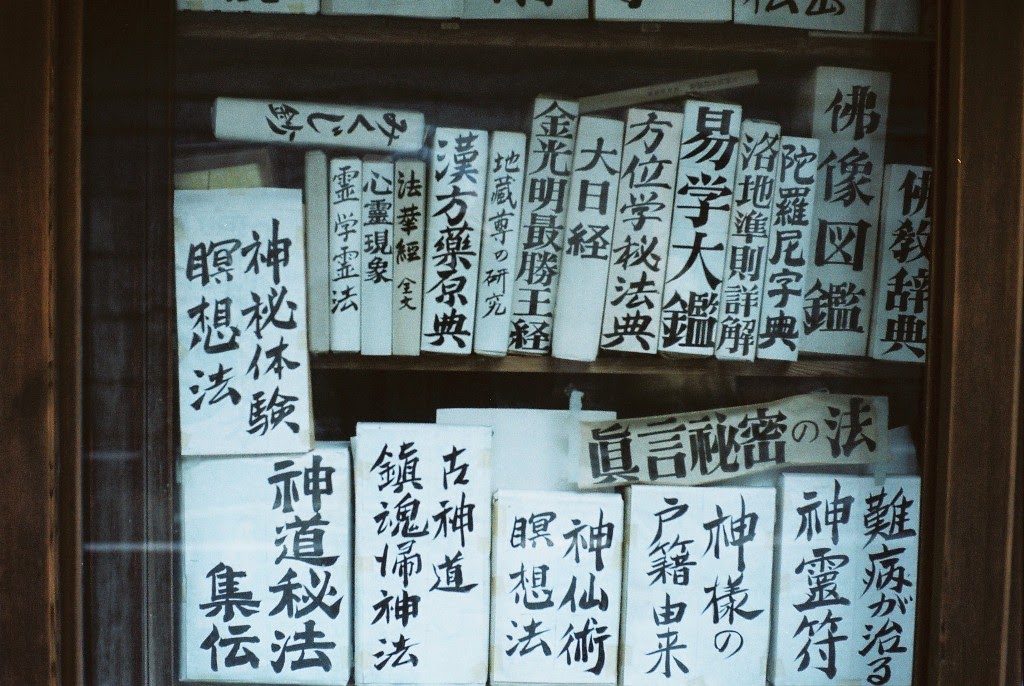 みくじ
神秘体験
瞑想法
霊学霊法
心靈現象
法華經 全文
漢方藥原典
地蔵尊の研究
金光明最勝王経
大日経
方位学秘法典
易学大鑑
洛地準則詳解
陀羅尼字典
佛像図鑑
佛教辞典
眞言祕密の法
神道秘法
集伝
古神道
鎮魂帰神法
神仙術
瞑想法
神様の
戸籍由来
難病が治る
神靈符